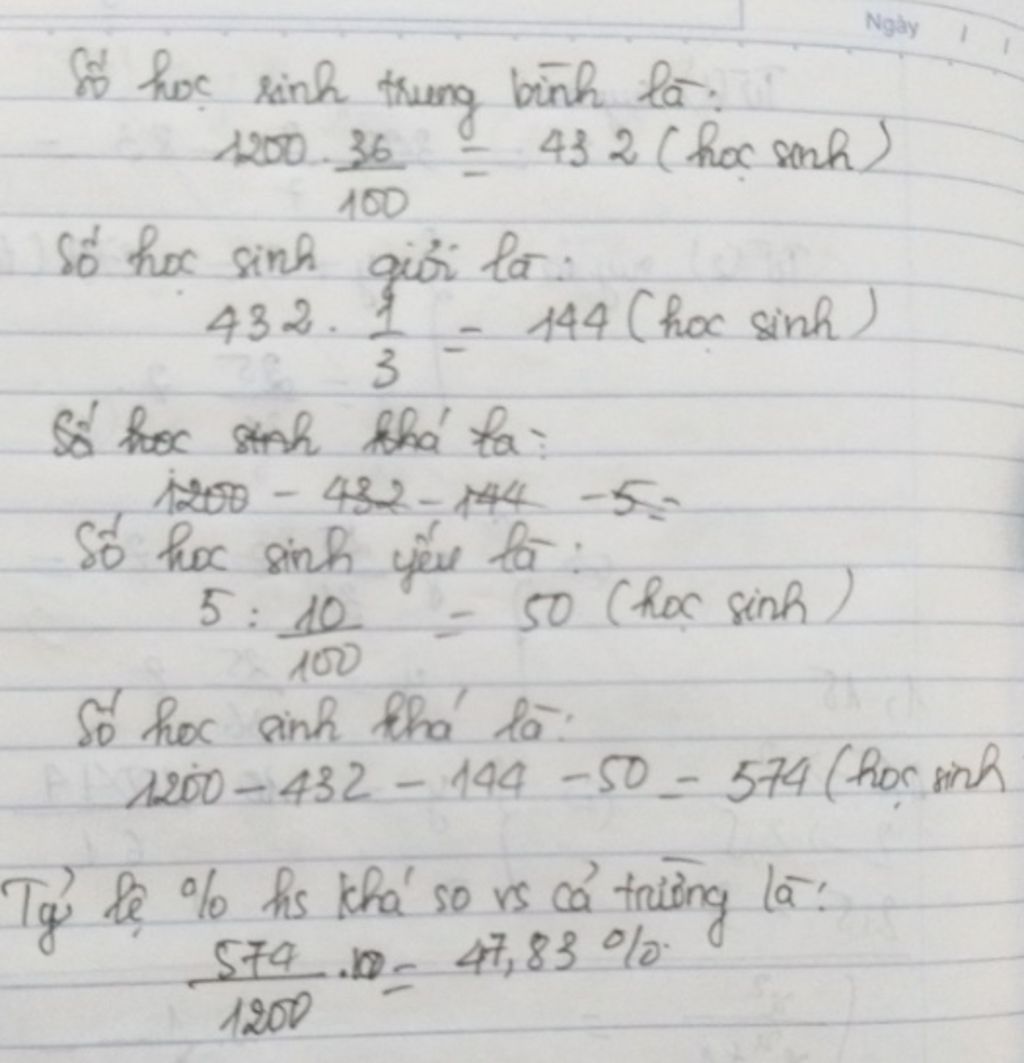 Ngày / /
Số học sinh trung bình là:
1200 . 36/100 = 432 (học sinh)
Số học sinh giỏi là:
432 . 1/3 = 144 (học sinh)
Số học sinh khá là:
1200 - 432 - 144 - 5 =
Số học sinh yếu là:
5 : 10/100 = 50 (học sinh)
Số học sinh khá là:
1200 - 432 - 144 - 50 = 574 (học sinh
Tỷ lệ % hs khá so vs cả trường là:
574/1200 . = 47,83 %